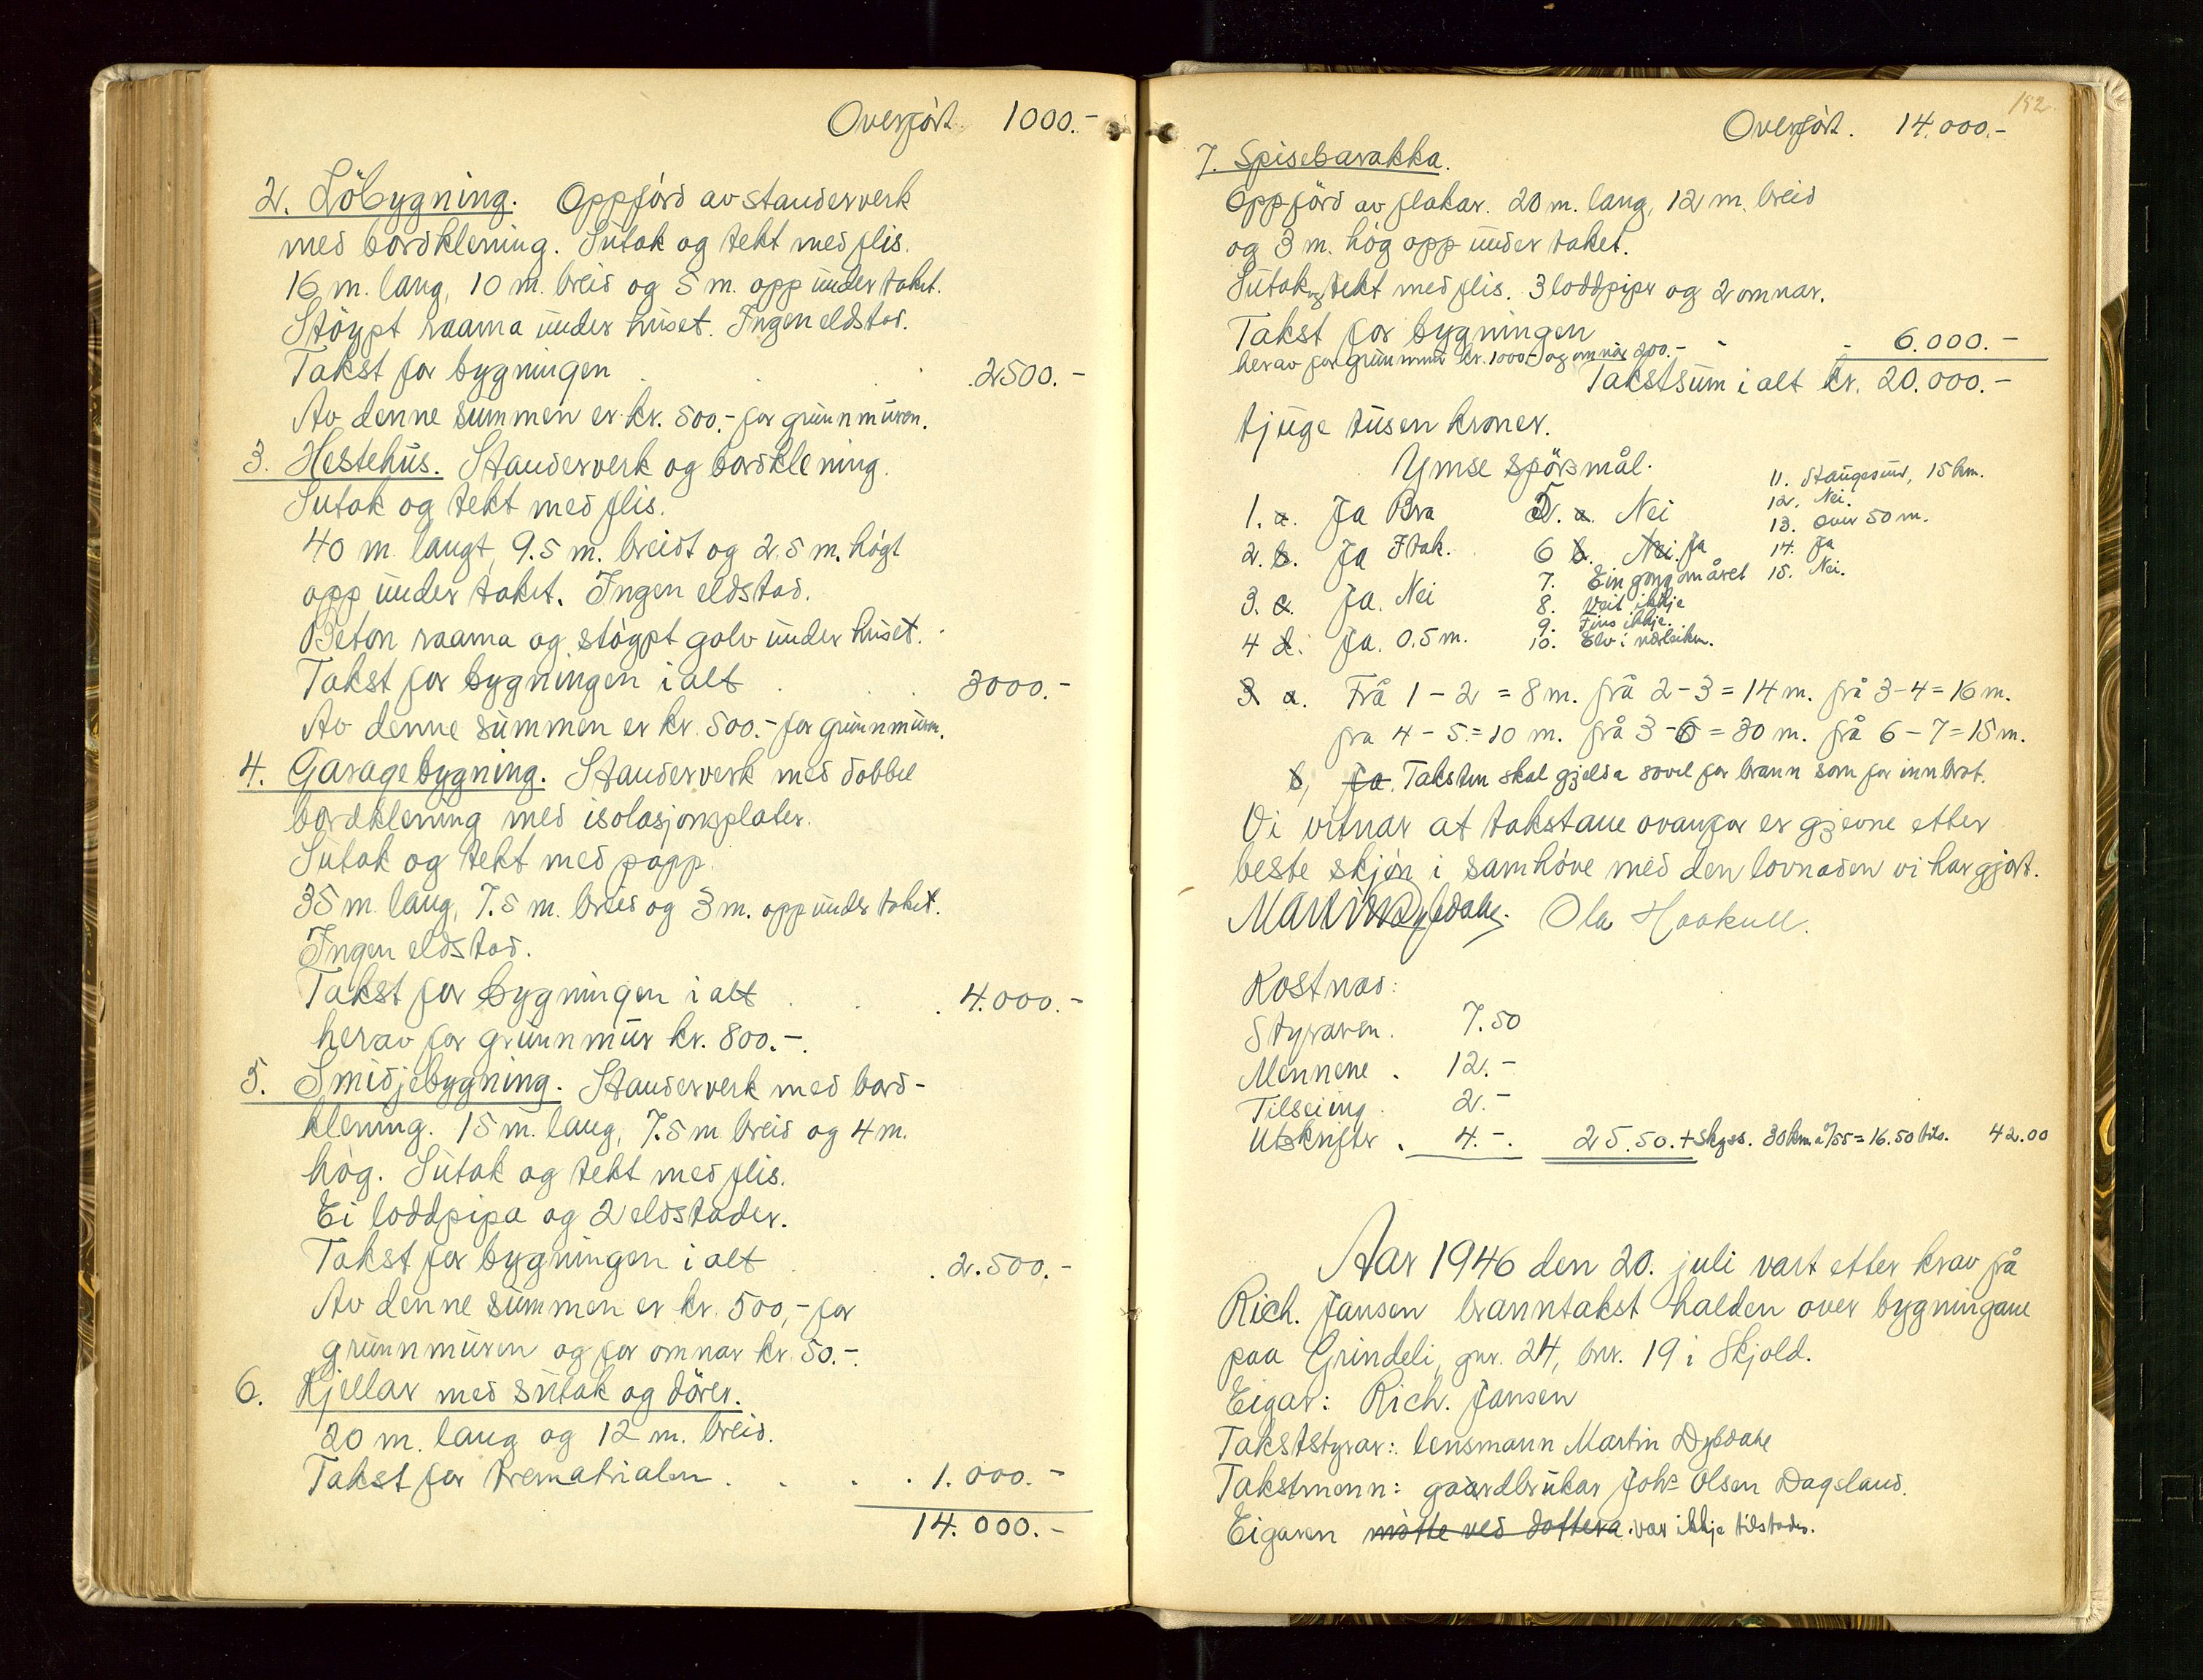 Overført. 1000.-
2. Löbygning. Oppförd av stauderverk
med bordklening. Sutak og tekt med flis.
16 m. lang, 10 m. breid og 5 m. opp under taket.
Stöypt raama under huset. Ingen eldstad.
Takst for bygningen . . . 2500.-
Av denne summen er kr. 500.- for grunnmuren.
3. Hestehus. Stauderverk og bordklening.
Sutak og tekt med flis.
40 m. langt, 9.5 m. breidt og 2.5 m. högt
opp under taket. Ingen eldstad.
Beton raama og stöypt golv under huset.
Takst for bygningen i alt . . . 3000.-
Av denne summen er kr. 500.- for grunnmuren.
4. Garagebygning. Stauderverk med dobbel
bordklening med isolasjonsplater.
Sutak og tekt med papp.
35 m. lang, 7.5 m. breid og 3 m. opp under taket.
Ingen eldstad.
Takst for bygningen i alt . . . 4.000.-
herav for grunnmur kr. 800.-.
5. Smidjebygning. Stauderverk med bord-
klening. 15 m. lang, 7.5 m. breid og 4 m.
hög. Sutak og tekt med flis.
Ei loddpipa og 2 eldstader.
Takst for bygningen i alt . . . 2.500.-
Av denne summen er kr. 500,- for
grunnmuren og for omnar kr. 50.-.
6. Kjellar med sutak og dörer.
20 m. lang og 12 m. breid.
Takst for trematrialen . . . . 1.000.-
14.000.-
152.
Overført. 14.000.-
7. Spisebarakka.
Oppförd av flakar. 20 m. lang, 12 m. breid
og 3 m. hög opp under taket.
Sutak og tekt med flis. 3 loddpiper og 2 omnar.
Takst for bygningen . . 6.000.-
herav for grunnmur kr. 1000.- og omnar 200.-
Takstsum i alt kr. 20.000.-
tjuge tusen kroner.
Ymse spörsmål.
1. a. Ja Bra 5. a. Nei 11. Haugesund, 15 km.
12. Nei.
2. b. Ja I tak. 6 b. Nei. Ja 13. Over 50 m.
14. Ja
3. c. Ja. Nei 7. Ein gong om året 15. Nei.
8. Veit ikkje
9. Fins ikkje.
4 d. Ja. 0.5 m. 10. Elv i nærleiken.
3 a. Frå 1 - 2 = 8 m. frå 2 - 3 = 14 m. frå 3 - 4 = 16 m.
fra 4 - 5 = 10 m. frå 3 - 6 = 30 m. frå 6 - 7 = 15 m.
b, Ja. Taksten skal gjelda sovel for brann som for innbrot.
Vi vitnar at takstane ovanfor er gjevne etter
beste skjön i samhöve med den lovnaden vi har gjort.
Martin Dybdahl. Ola Haakull.
Kostnad:
Styraren. 7.50
Mennene . 12.-
Tilseiing . 2.-
Utskrifter . 4.-. 25.50. + skyss. 30 km a /55 = 16.50 tils. 42.00
Aar 1946 den 20. juli vart etter krav få
Rich. Jansen branntakst halden over bygningane
paa Grindeli, gnr. 24, bnr. 19 i Skjold.
Eigar: Rich. Jansen
Takststyrar: lensmann Martin Dybdahl
Takstmenn: gaardbrukar Johs Olsen Dagsland.
Eigaren møtte ved dottera. var ikkje tilstades.